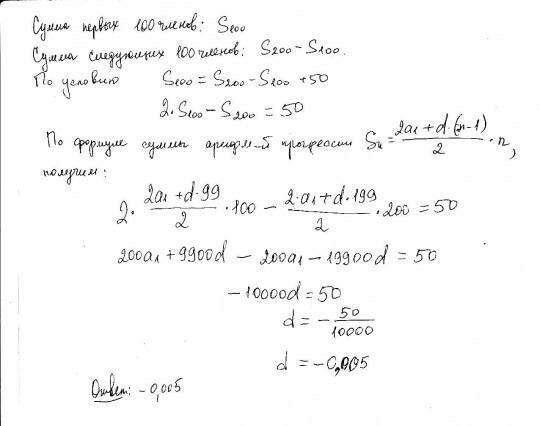 Сумма первых 100 членов: S₁₀₀
Сумма следующих 100 членов: S₂₀₀ – S₁₀₀.
По условию S₁₀₀ = S₂₀₀ – S₁₀₀ + 50
2·S₁₀₀ – S₂₀₀ = 50
По формуле суммы арифм-й прогрессии Sₙ = (2a₁ + d·(n-1))/2 · n,
получим:
2· (2a₁ + d·99)/2 ·100 – (2·a₁ + d·199)/2 ·200 = 50
200a₁ + 9900d – 200a₁ – 19900d = 50
–10000d = 50
d = – 50/10000
d = –0,005
Ответ: –0,005